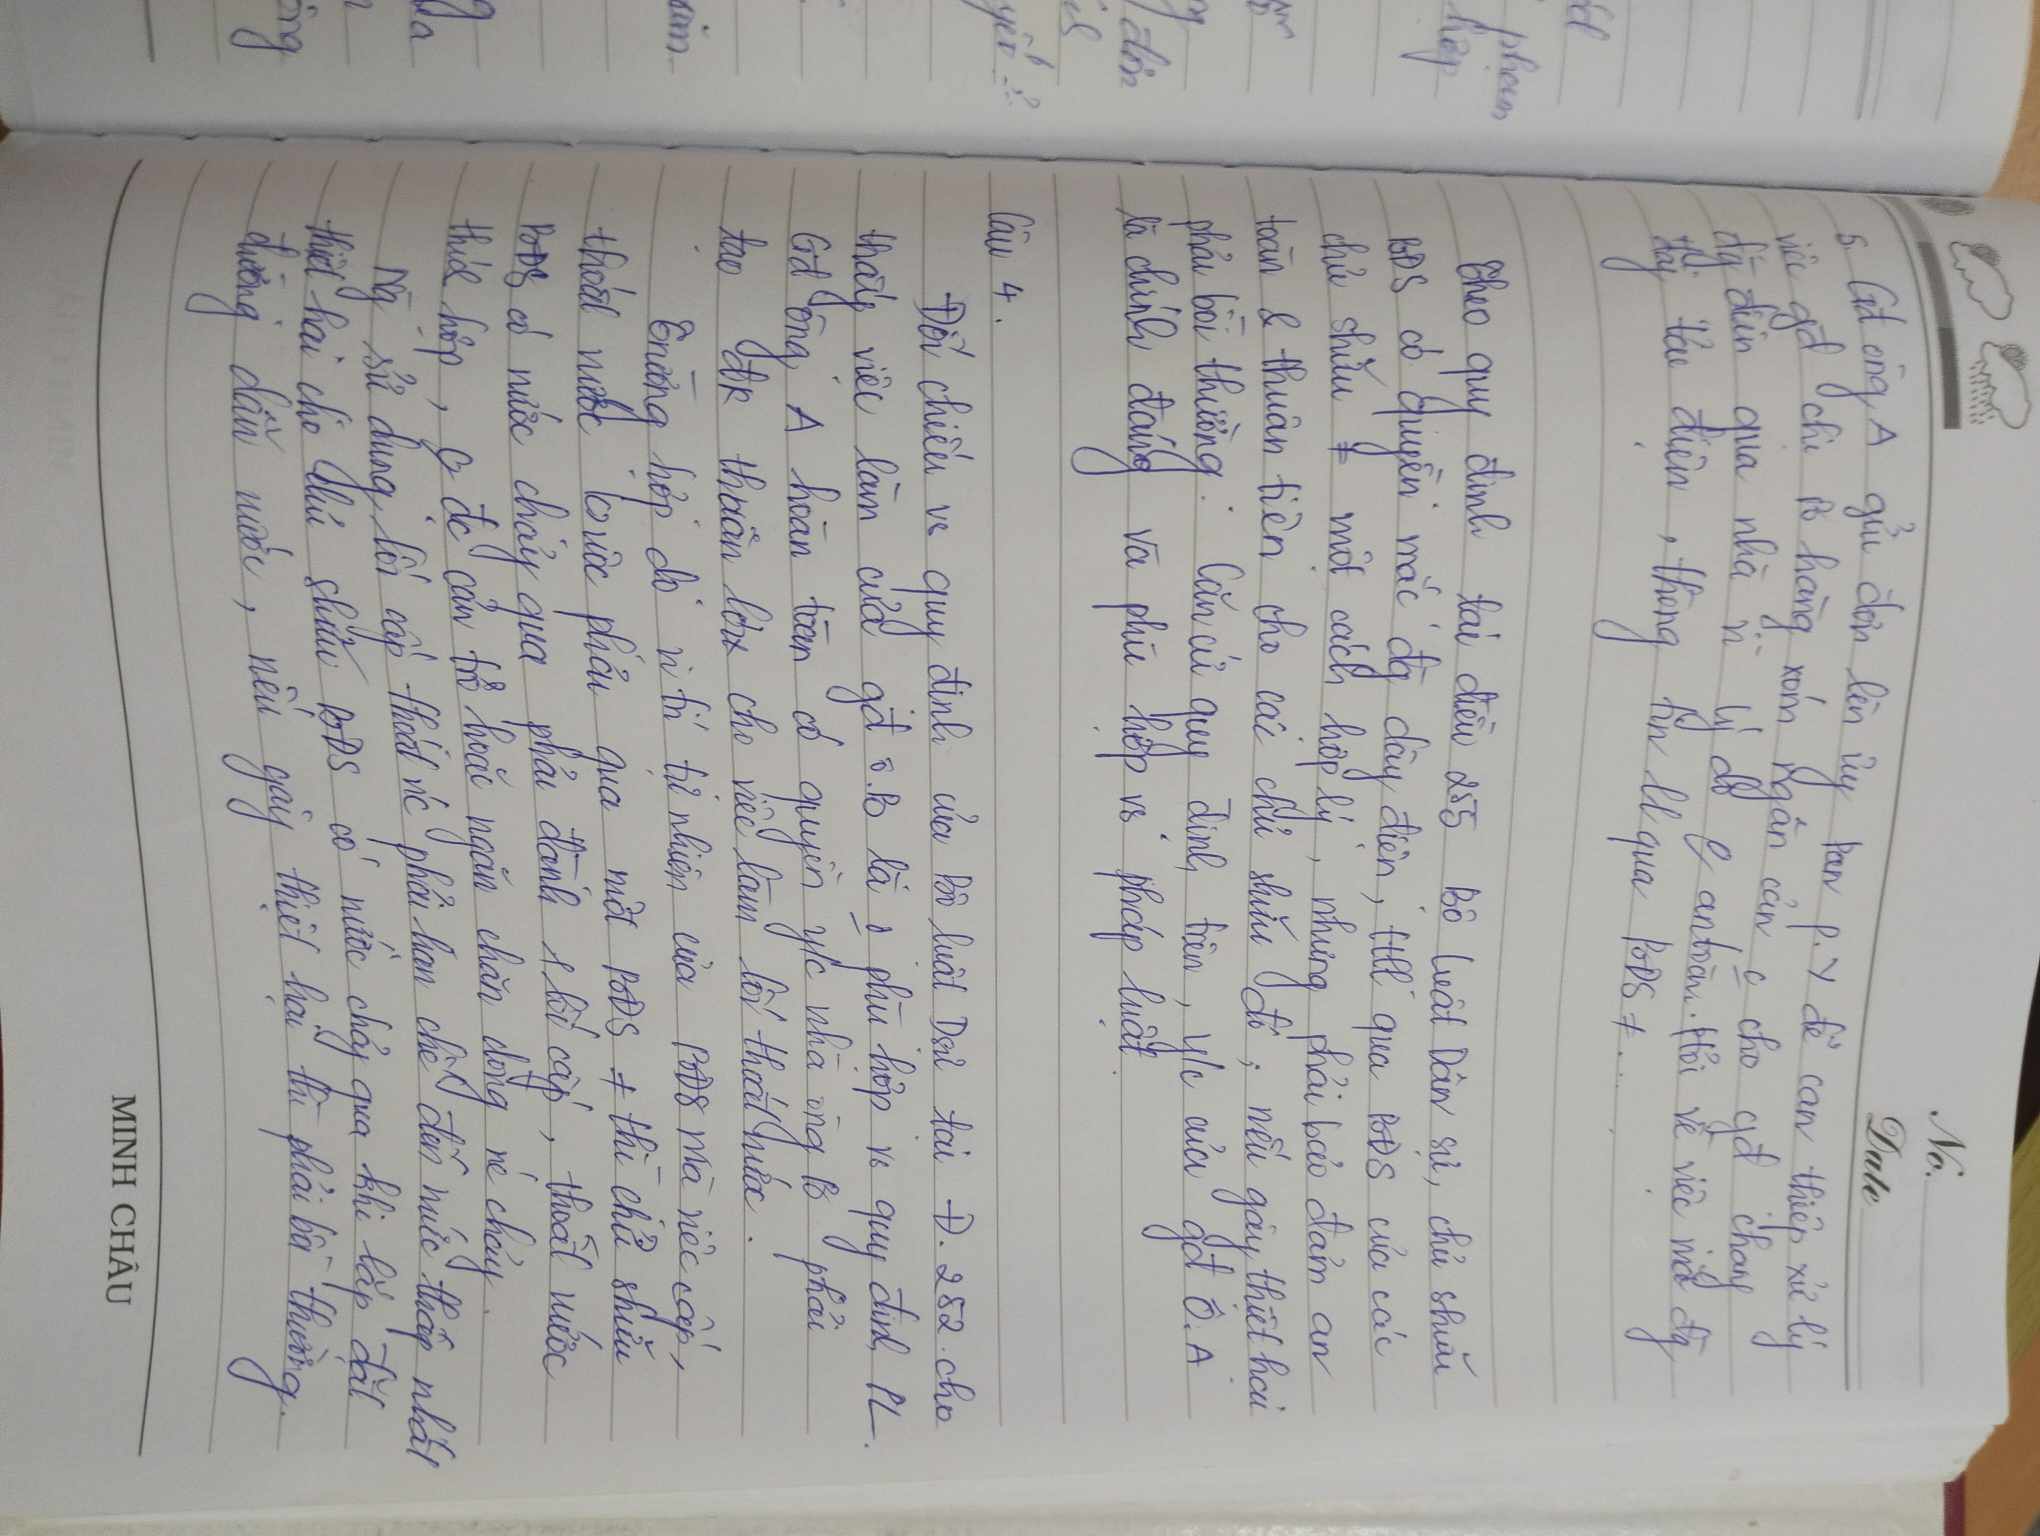 No.
Date
5. Gđ ông A gửi đơn lên ủy ban p. Y để can thiệp xử lý
việc gđ chị B hàng xóm ngăn cản cho gđ chang
đg điện qua nhà vì lý do an toàn. Hỏi về việc mắc đg
dây tải điện, thông tin ll qua BĐS ≠ ...
Theo quy định tại điều 255 Bộ luật Dân sự, chủ shữu
BĐS có quyền mắc đg dây điện, ttll qua BĐS của các
chủ shữu ≠ một cách hợp lý, nhưng phải bảo đảm an
toàn & thuận tiện cho các chủ shữu đó; nếu gây thiệt hại
phải bồi thường. Căn cứ quy định trên, y/c của gđ Ô. A
là chính đáng và phù hợp vs pháp luật.
Câu 4.
Đối chiếu vs quy định của Bộ luật Dsự tại Đ. 252 cho
thấy việc làm của gđ ô.B là phù hợp vs quy định PL.
Gđ ông A hoàn toàn có quyền y/c nhà ông B phải
tạo đk thuận lợi cho việc làm lối thoát nước.
Trường hợp do vị trí tự nhiên của BĐS mà việc cấp,
thoát nước buộc phải qua một BĐS ≠ thì chủ shữu
BĐS có nước chảy qua phải dành 1 lối cấp, thoát nước
thích hợp, đc cản trở hoặc ngăn chặn dòng nc chảy.
Ng sử dụng lối cấp thoát nc phải hạn chế đến mức thấp nhất
thiệt hại cho chủ shữu BĐS có nước chảy qua khi lắp đặt
đường dẫn nước, nếu gây thiệt hại thì phải bồi thường.
MINH CHÂU